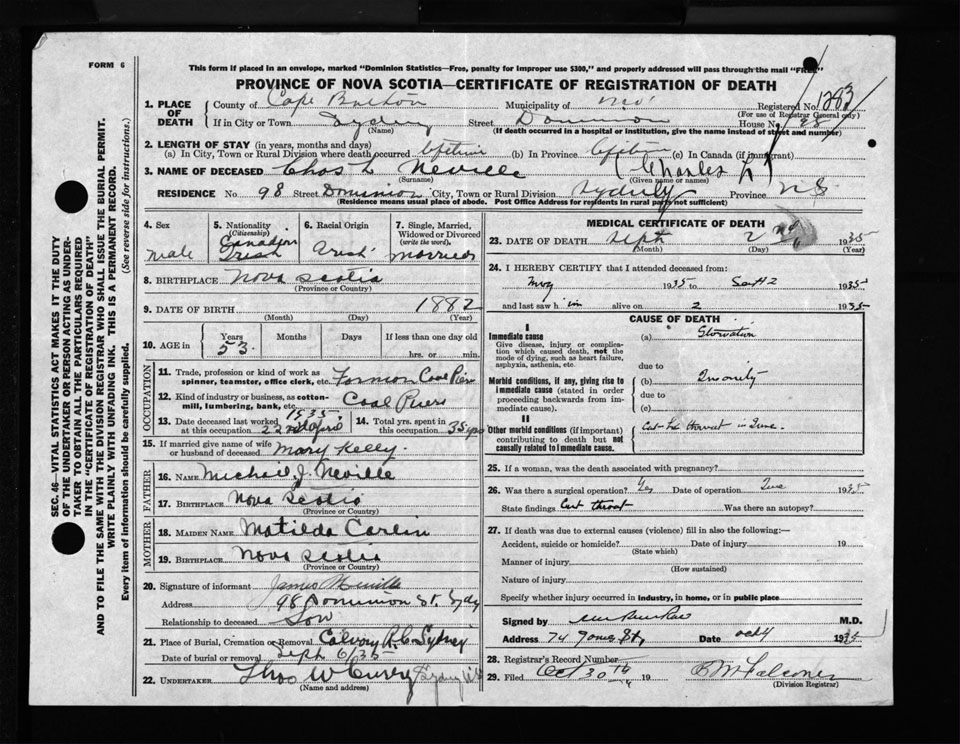 FORM 6
This form if placed in an envelope, marked "Dominion Statistics—Free, penalty for improper use $300," and properly addressed will pass through the mail "FREE"
PROVINCE OF NOVA SCOTIA—CERTIFICATE OF REGISTRATION OF DEATH
1. PLACE OF DEATH
County of Cape Breton Municipality of Registered No. 1283
(For use of Registrar General only)
If in City or Town Sydney Street Dominion House No. 98
(Name) (If death occurred in a hospital or institution, give the name instead of street and number)
2. LENGTH OF STAY (in years, months and days)
(a) In City, Town or Rural Division where death occurred Lifetime (b) In Province Lifetime (c) In Canada (if immigrant)
3. NAME OF DECEASED Chos L Neville (Charles L)
(Surname) (Given name or names)
RESIDENCE No. 98 Street Dominion City, Town or Rural Division Sydney Province N.S.
(Residence means usual place of abode. Post Office Address for residents in rural parts not sufficient)
SEC. 46—VITAL STATISTICS ACT MAKES IT THE DUTY
OF THE UNDERTAKER OR PERSON ACTING AS UNDER-
TAKER TO OBTAIN ALL THE PARTICULARS REQUIRED
IN THE "CERTIFICATE OF REGISTRATION OF DEATH"
AND TO FILE THE SAME WITH THE DIVISION REGISTRAR WHO SHALL ISSUE THE BURIAL PERMIT.
WRITE PLAINLY WITH UNFADING INK. THIS IS A PERMANENT RECORD.
Every item of information should be carefully supplied. (See reverse side for instructions.)
4. Sex
male
5. Nationality
(Citizenship)
Canadian
Irish
6. Racial Origin
Irish
7. Single, Married,
Widowed or Divorced
(write the word)
married
8. BIRTHPLACE Nova Scotia
(Province or Country)
9. DATE OF BIRTH 1882
(Month) (Day) (Year)
10. AGE in Years Months Days If less than one day old
53 hrs. or min.
OCCUPATION
11. Trade, profession or kind of work as
spinner, teamster, office clerk, etc. Foreman Coal Piers
12. Kind of industry or business, as cotton-
mill, lumbering, bank, etc. Coal Piers
13. Date deceased last worked 1935
at this occupation 22nd April
14. Total yrs. spent in
this occupation 35 yrs
15. If married give name of wife
or husband of deceased Mary Kelly
FATHER
16. NAME Michael J. Neville
17. BIRTHPLACE Nova Scotia
(Province or Country)
MOTHER
18. MAIDEN NAME Matilda Carlin
19. BIRTHPLACE Nova Scotia
(Province or Country)
20. Signature of informant James Neville
Address 98 Dominion St. Sydy
Relationship to deceased Son
21. Place of Burial, Cremation or Removal Calvary R.C. Sydney
Date of burial or removal Sept 6/35
22. UNDERTAKER Thos W Curry Sydney N.S.
(Name and address)
MEDICAL CERTIFICATE OF DEATH
23. DATE OF DEATH Sept 2nd 1935
(Month) (Day) (Year)
24. I HEREBY CERTIFY that I attended deceased from:
May 1935 to Sept 2 1935
and last saw h im alive on 2 1935
CAUSE OF DEATH
I
Immediate cause (a) Starvation
Give disease, injury or complica-
tion which caused death, not the
mode of dying, such as heart failure,
asphyxia, asthenia, etc.
due to
Morbid conditions, if any, giving rise to
immediate cause (stated in order
proceeding backwards from im-
mediate cause).
(b) Insanity
due to
(c)
II
Other morbid conditions (if important)
contributing to death but not
causally related to immediate cause.
Cut the throat in June.
25. If a woman, was the death associated with pregnancy?
26. Was there a surgical operation? Yes Date of operation June 1935
State findings Cut throat Was there an autopsy?
27. If death was due to external causes (violence) fill in also the following:—
Accident, suicide or homicide? Date of injury 19
(State which)
Manner of injury
(How sustained)
Nature of injury
Specify whether injury occurred in industry, in home, or in public place
Signed by M.D.
Address 74 George St, Date 1935
28. Registrar's Record Number
29. Filed Oct 30th 19
(Division Registrar)